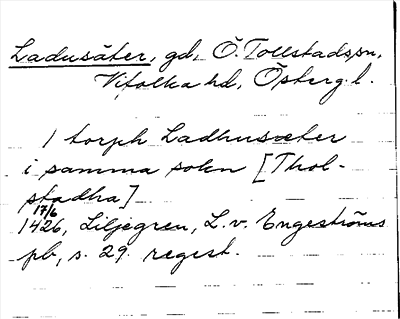 Ladusäter, gd, Ö. Tollstads sn,
Vifolka hd, Österg. l.
I torph Ladhusæter
i samma sokn [Thol-
stadha]
17/6
1426, Liljegren, L. v. Engeströms
pb, s. 29. regest.